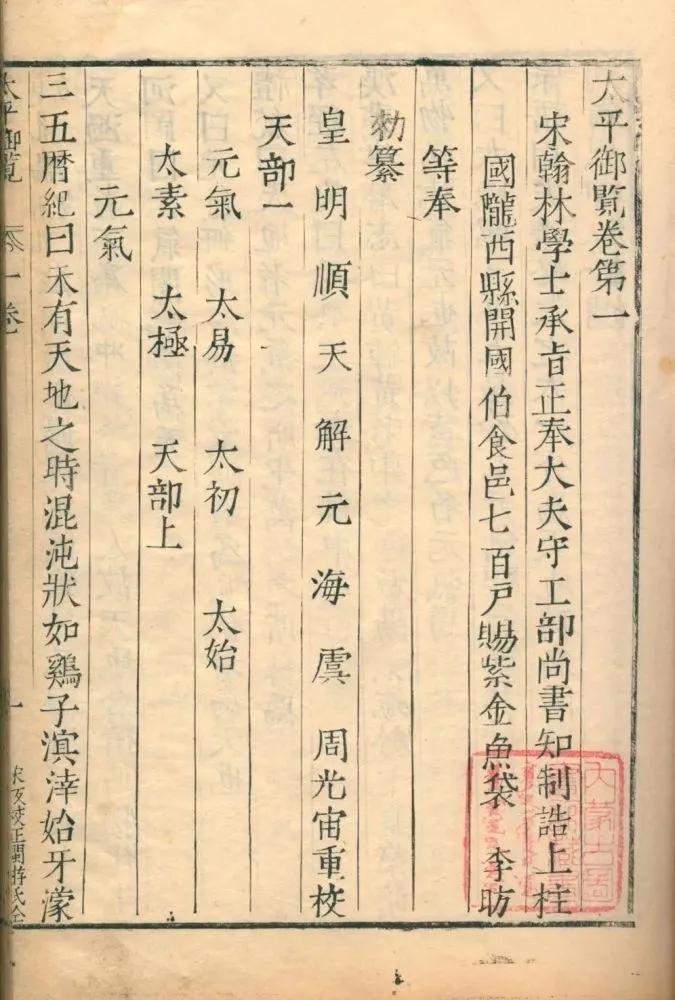 太平御覧卷第一
宋翰林學士承旨正奉大夫守工部尚書知制誥上柱
國隴西縣開國伯食邑七百戸賜紫金魚袋 李昉
等奉
勑纂
皇明順天解元海虞 周光宙重校
天部一
元氣 太易 太初 太始
太素 太極 天部上
元氣
三五暦紀曰未有天地之時混沌狀如鷄子溟涬始牙濛
太平御覧 一卷
一